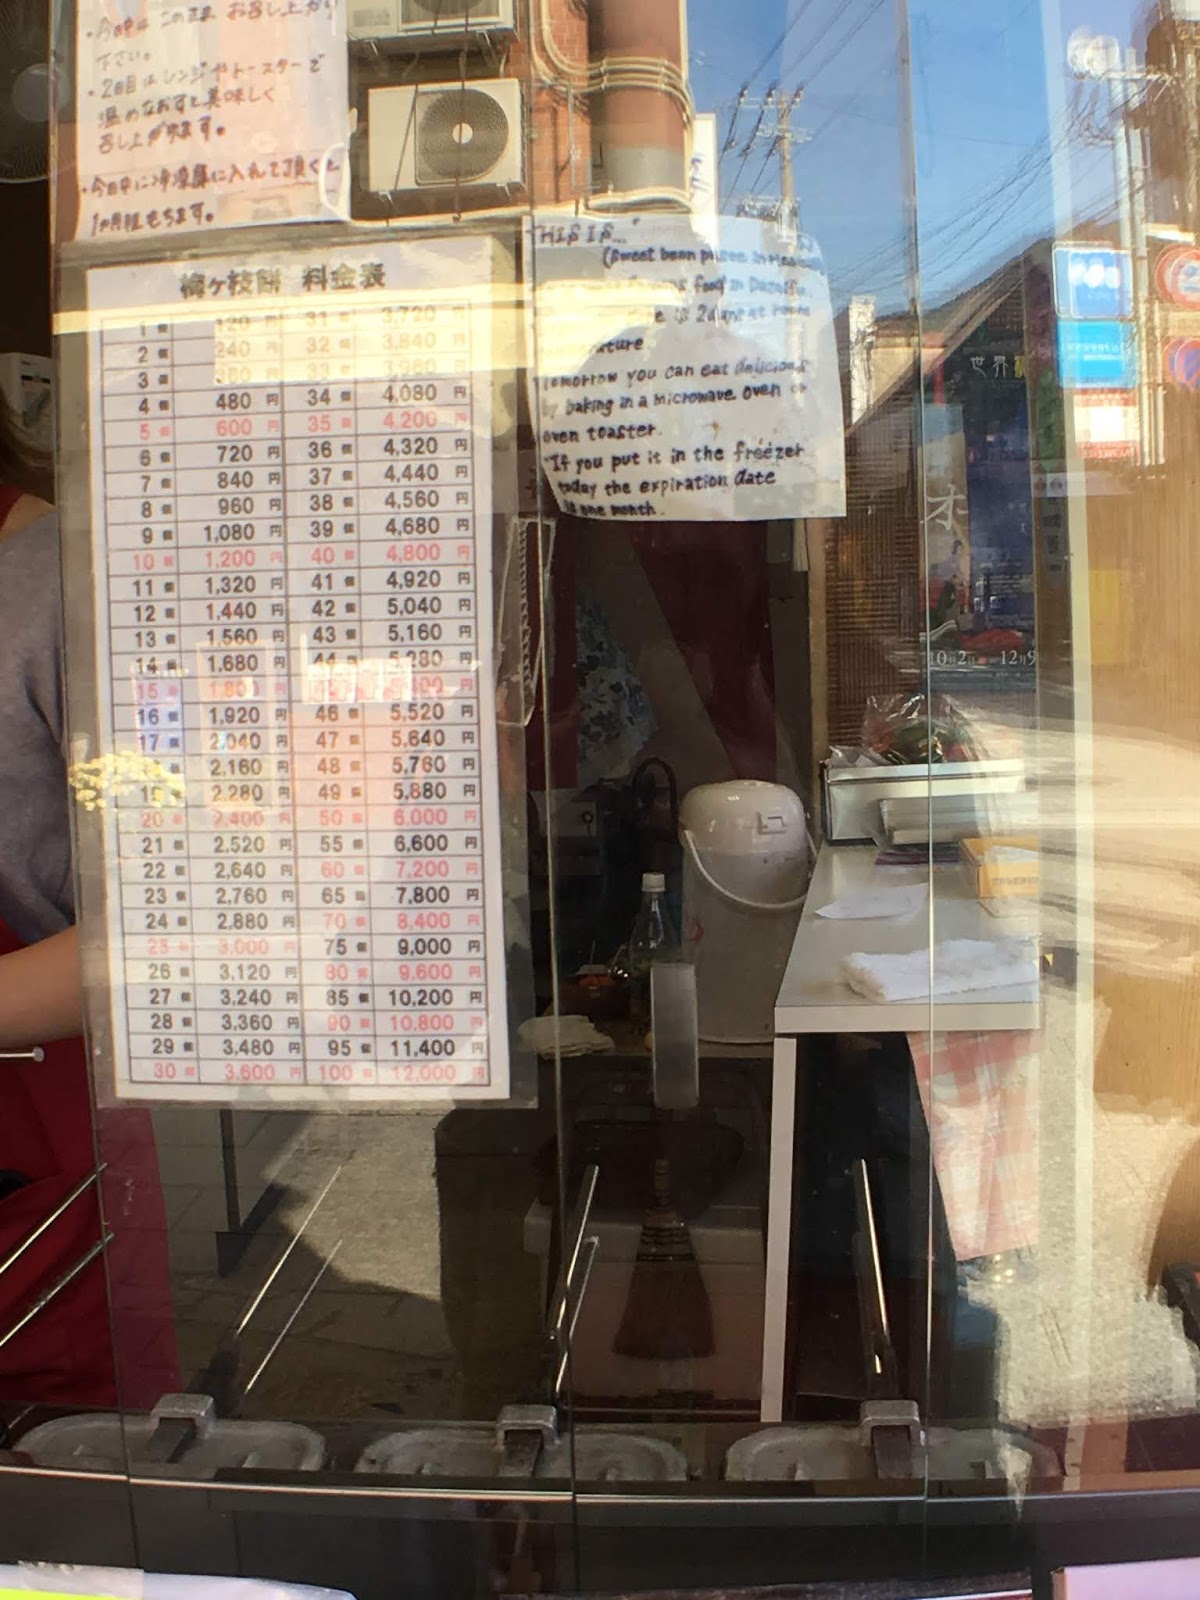 ・今日中はこのまま お召し上がり
下さい。
・2日目はレンジやトースターで
温めなおすと美味しく
召し上がれます。
・今日中に冷凍庫に入れて頂くと
1ヶ月程もちます。
梅ヶ枝餅 料金表
1 個 120 円 31 個 3,720 円
2 個 240 円 32 個 3,840 円
3 個 360 円 33 個 3,960 円
4 個 480 円 34 個 4,080 円
5 個 600 円 35 個 4,200 円
6 個 720 円 36 個 4,320 円
7 個 840 円 37 個 4,440 円
8 個 960 円 38 個 4,560 円
9 個 1,080 円 39 個 4,680 円
10 個 1,200 円 40 個 4,800 円
11 個 1,320 円 41 個 4,920 円
12 個 1,440 円 42 個 5,040 円
13 個 1,560 円 43 個 5,160 円
14 個 1,680 円 44 個 5,280 円
15 個 1,800 円
16 個 1,920 円 46 個 5,520 円
17 個 2,040 円 47 個 5,640 円
2,160 円 48 個 5,760 円
19 2,280 円 49 個 5,880 円
20 個 2,400 円 50 個 6,000 円
21 個 2,520 円 55 個 6,600 円
22 個 2,640 円 60 個 7,200 円
23 個 2,760 円 65 個 7,800 円
24 個 2,880 円 70 個 8,400 円
25 個 3,000 円 75 個 9,000 円
26 個 3,120 円 80 個 9,600 円
27 個 3,240 円 85 個 10,200 円
28 個 3,360 円 90 個 10,800 円
29 個 3,480 円 95 個 11,400 円
30 個 3,600 円 100 個 12,000 円
THIS IS..."
(Sweet bean
food in
is 2days at room
Tomorrow you can eat delicious
by baking in a microwave oven or
oven toaster.
"If you put it in the freezer
today the expiration date
is one month.
世界
木
10月2日 12月9